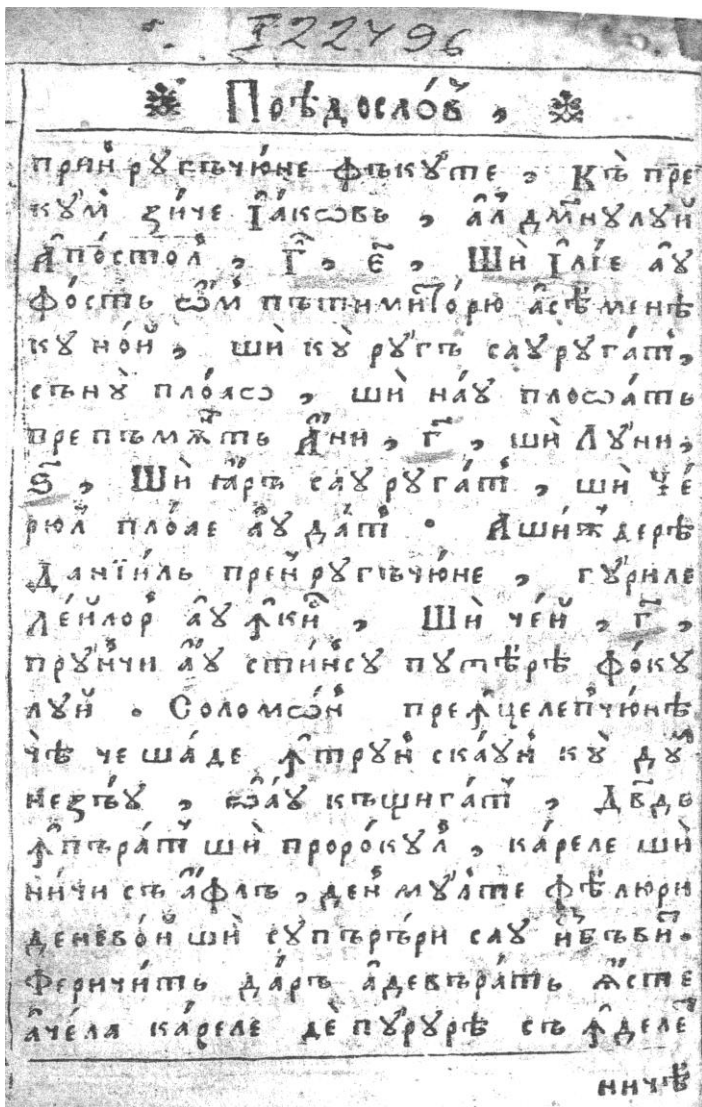 I 22496
Прѣдосло́в҆ й ,
прин҆ ругъчю́не фъкуте , Къ пре
кум҆ зи́че І҆а́кѡвь , а҆л дм҃нулуй
А҆по́стол҆ , г҃і , є҃ , Ши̇̀ І҆лі́е а҆у
фо́сть ѡ҆м҆ пътимито́рю а҆сѣ́менѣ
ку но́й , ши̇̀ ку̀ ру́гъ сау руга́т҆ ,
съну̀ пло́аѕѡ , ши̇̀ на́у плоѡа́ть
препъмѫ́ть А҆ни , г҃ , ши̇̀ Лу́ни ,
ѕ҃ , Ши̇̀ ꙗ҆ръ сау руга́т҆ , ши̇̀ Че́
рюл҆ пло́ае а҆у да́т҆ . Аши́ждерѣ
Данїи́ль прен҆ ругъчю́не , гу́риле
ле́йлор҆ а҆у ꙟкн҃ , Ши̇̀ че́й , г҃ ,
пру́нчи а҆у сти́нсу путѣ́рѣ фо́ку
луй . Соломѡ́н҆ преꙟцелепчю́нѣ
чѣ̀ че ша́де ꙟтрун҆ ска́ун҆ ку̀ дум
незъ́у , ѡ҆а́у къщига́т҆ , Дв҃дь
ꙟпъра́т҆ ши̇̀ проро́кул҆ , ка́реле ши̇̀
ни́чи съ а҆флъ , ден҆ му́лте фѣ́люри
денево́й ши̇̀ супъръ́ри сау и҆збъви́т҆ .
Феричи́ть да́ръ а҆девъра́ть ꙗ҆сте
а҆че́ла ка́реле дѐ пу́рурѣ съ ꙟделет
ничѣ